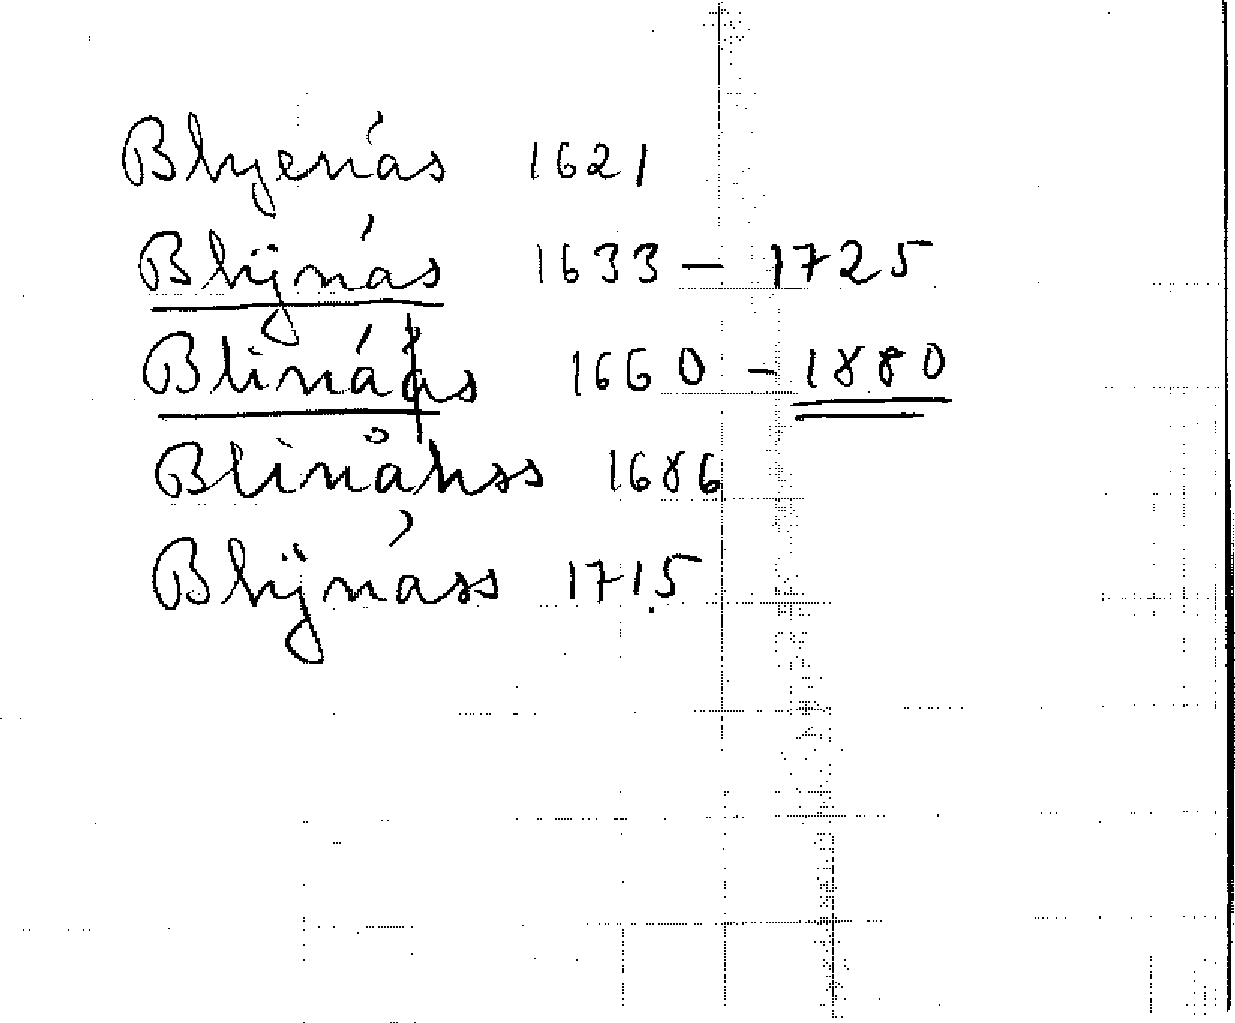 Blyenás 1621
Blÿnás 1633 – 1725
Blinás 1660 – 1880
Blinåhss 1686
Blÿnáss 1715